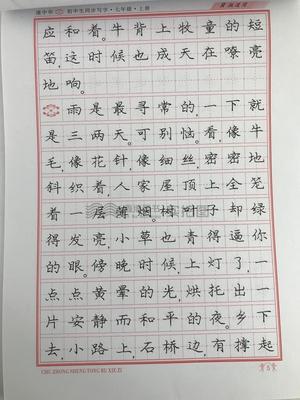 初中生同步写字·七年级·上册
应和着。牛背上牧童的短
笛,这时候也成天在嘹亮
地响。
雨是最寻常的,一下就
是三两天。可别恼。看,像牛
毛,像花针,像细丝,密密地
斜织着,人家屋顶上全笼
着一层薄烟。树叶子却绿
得发亮,小草也青得逼你
的眼。傍晚时候,上灯了,一
点点黄晕的光,烘托出一
片安静而和平的夜。乡下
去,小路上,石桥边,有撑起
CHU ZHONG SHENG TONG BU XIE ZI